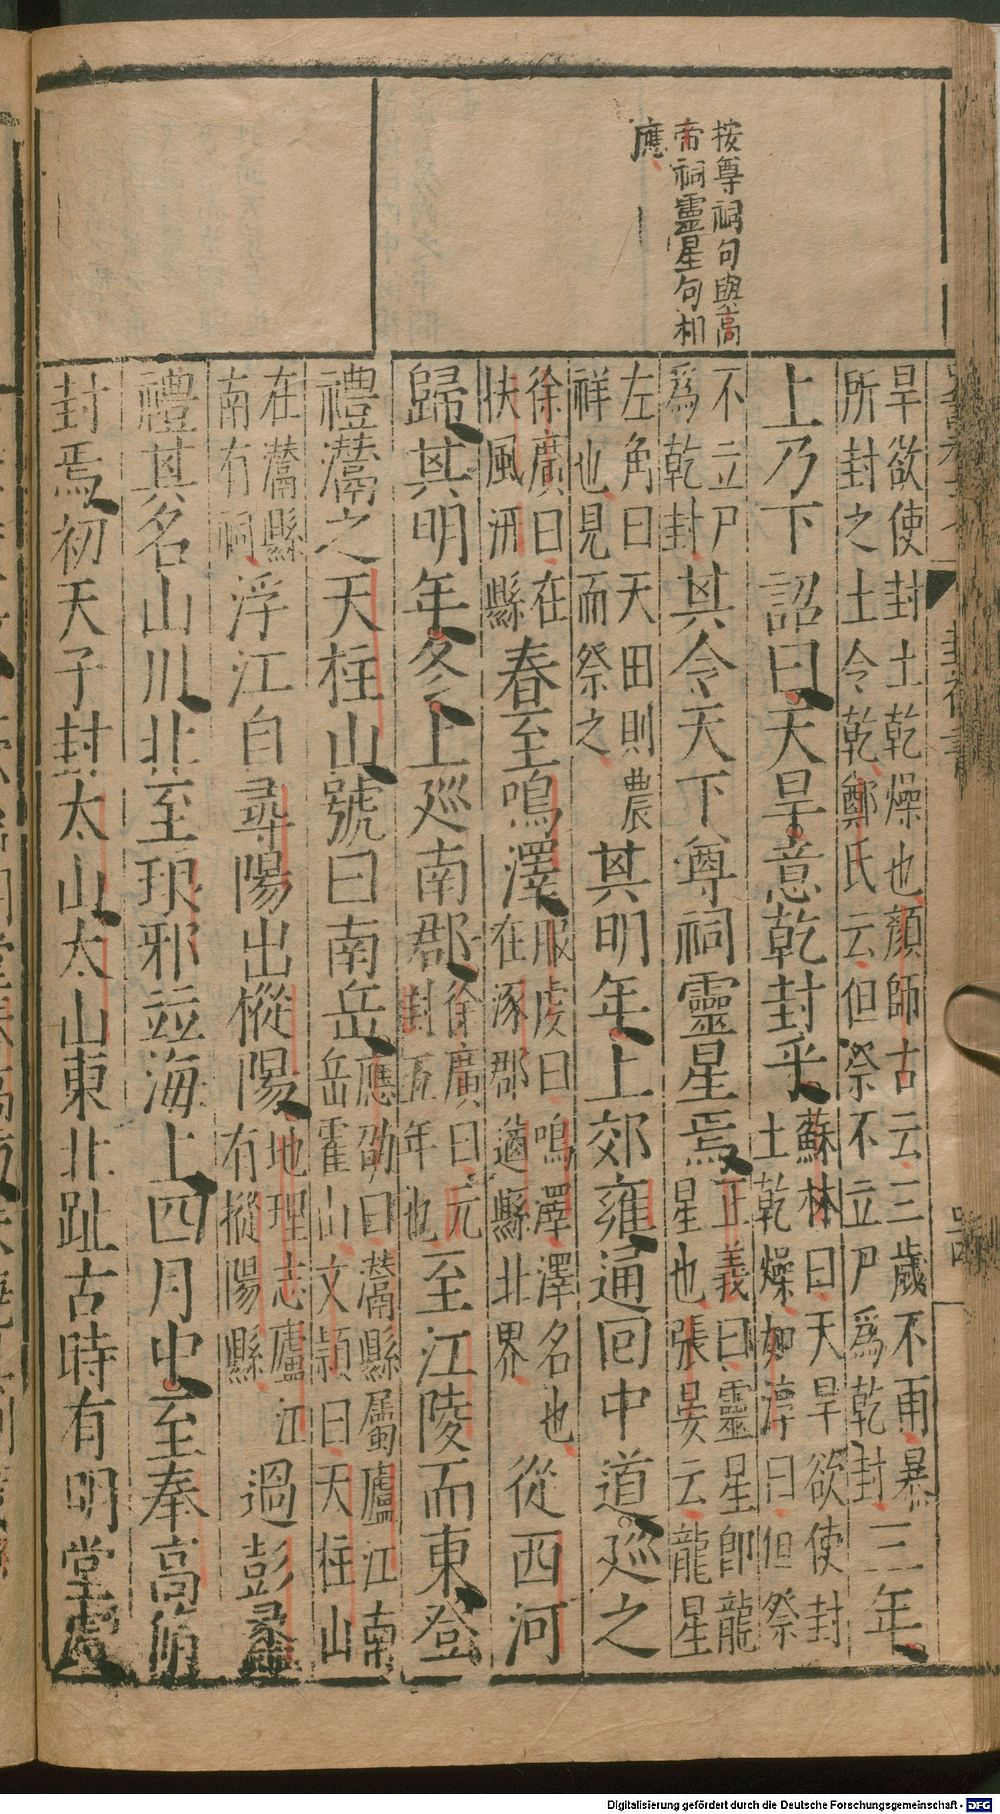 按尊祠句與高
帝祠靈星句相
應
旱欲使封土乾燥也顏師古云三歲不雨暴
所封之土令乾鄭氏云但祭不立尸爲乾封
三年
上乃下詔曰天旱意乾封乎
蘇林曰天旱欲使封
土乾燥如淳曰但祭
不立尸
爲乾封
其令天下尊祠靈星焉
正義曰靈星即龍
星也張晏云龍星
左角曰天田則農
祥也見而祭之
其明年上郊雍通回中道巡之
徐廣曰在
扶風汧縣
春至鳴澤
服虔曰鳴澤澤名也
在涿郡遒縣北界
從西河
歸其明年冬上巡南郡
徐廣曰元
封五年也
至江陵而東登
禮灊之天柱山號曰南岳
應劭曰灊縣屬廬江南
岳霍山文頴曰天柱山
在灊縣
南有祠
浮江自尋陽出樅陽
地理志廬江
有樅陽縣
過彭蠡
禮其名山川北至琅邪並海上四月中至奉高脩
封焉初天子封太山太山東北趾古時有明堂處
Digitalisierung gefördert durch die Deutsche Forschungsgemeinschaft - DFG